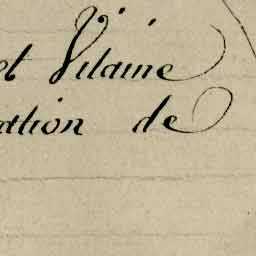 et Vilaine
ation de